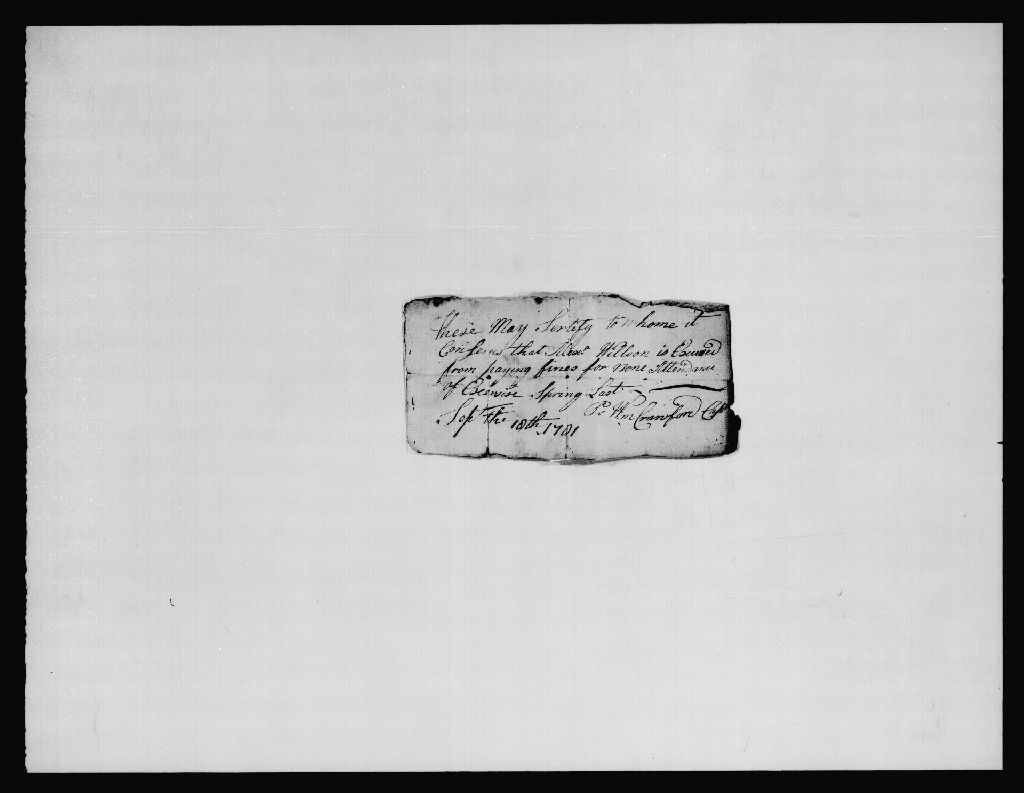 These May Sertify to whome it
Conserns that Alexr Willson is Excused
from paying fines for none Attendance
of Exersise Spring Last
Pr Wm Crawford Cpt
Sept the 18th 1781